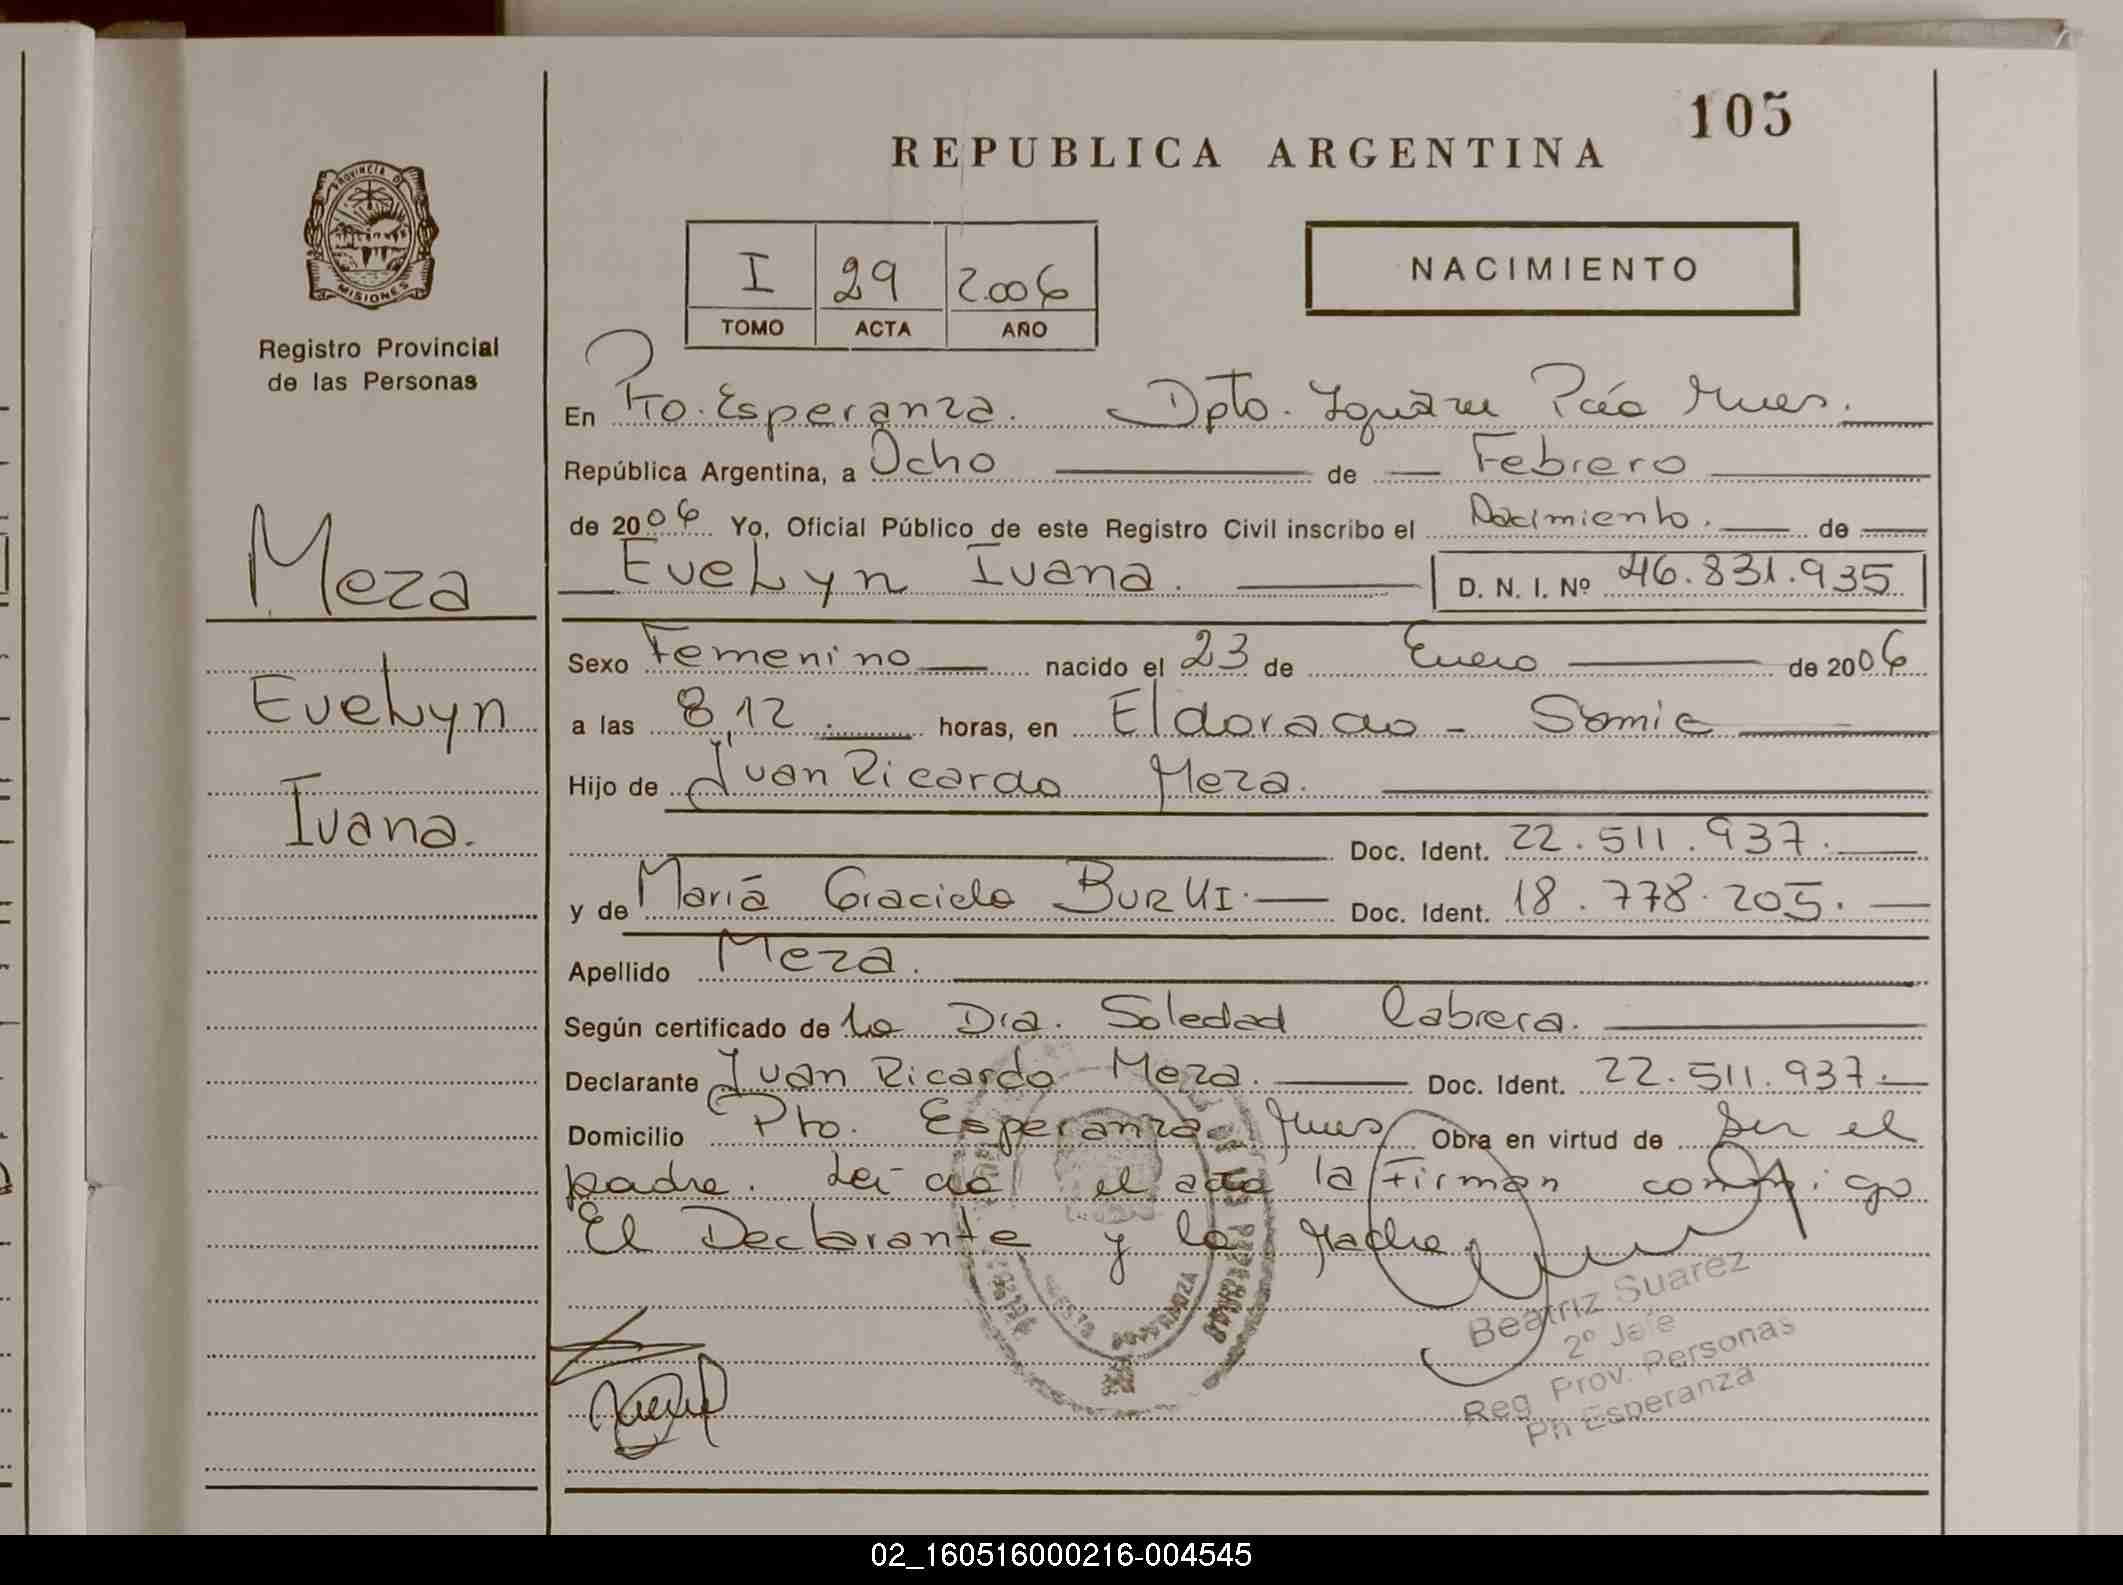 105
REPUBLICA ARGENTINA
PROVINCIA DE
MISIONES
Registro Provincial
de las Personas
I 29 2006
TOMO ACTA AÑO
NACIMIENTO
En Pto. Esperanza. Dpto. Iguazu Pcia Mnes.
República Argentina, a Ocho de Febrero
de 2006 Yo, Oficial Público de este Registro Civil inscribo el Nacimiento. de
Evelyn Ivana. D. N. I. Nº 46.831.935
Meza
Evelyn
Ivana.
Sexo Femenino nacido el 23 de Enero de 2006
a las 8,12. horas, en Eldorado - Samic
Hijo de Juan Ricardo Meza.
Doc. Ident. 22.511.937.
y de Mariá Graciela BURKI. Doc. Ident. 18.778.205.
Apellido Meza.
Según certificado de la Dra. Soledad Cabrera.
Declarante Juan Ricardo Meza. Doc. Ident. 22.511.937.
Domicilio Pto. Esperanza Mnes Obra en virtud de ser el
padre. Leida el acta la Firman conmigo
El Declarante y la Madre.
Beatriz Suarez
2º Jefe
Reg Prov. Personas
Esperanza
02_160516000216-004545